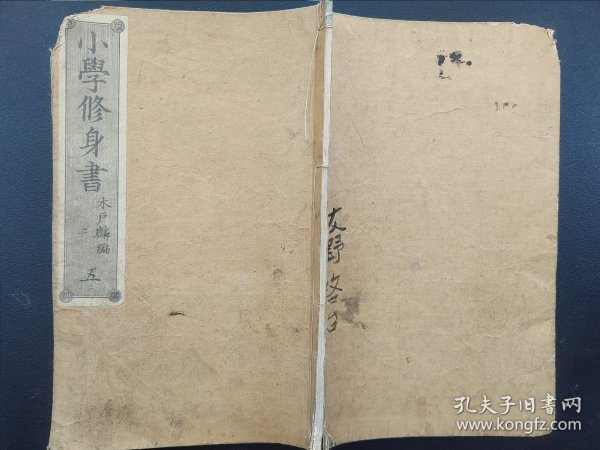 小學修身書
木戸麟編
二
五
友野
孔夫子旧书网
www.kongfz.com